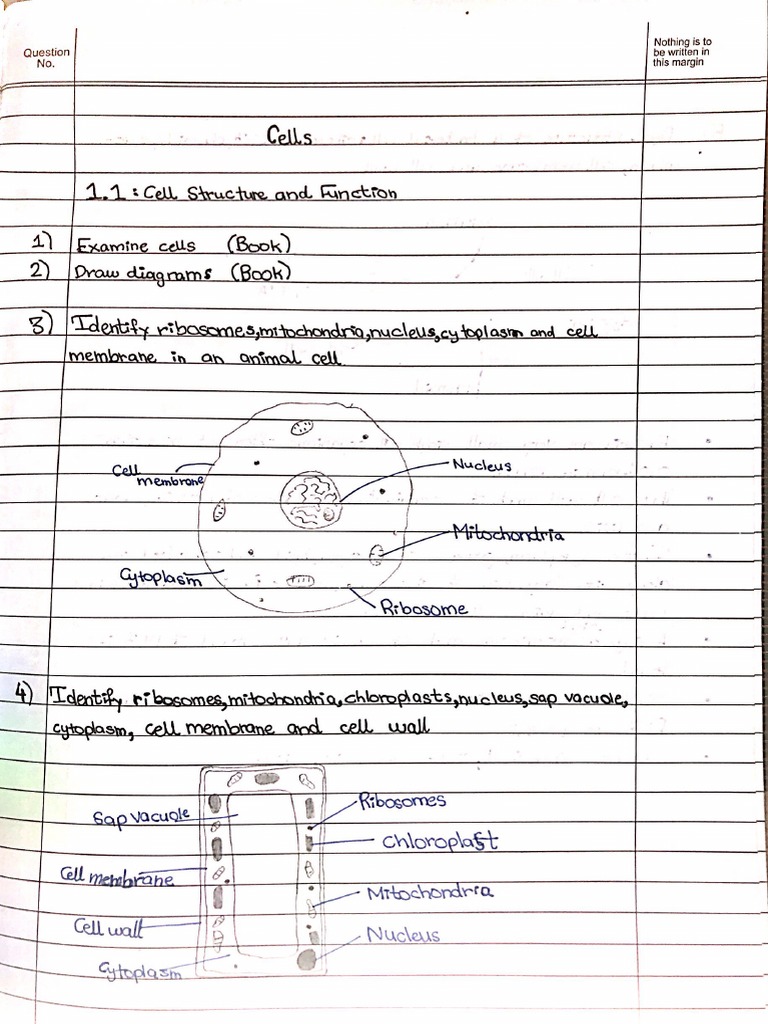 Question
No.
Nothing is to
be written in
this margin
Cells
1.1: Cell Structure and Function
1) Examine cells (Book)
2) Draw diagrams (Book)
3) Identify ribosomes, mitochondria, nucleus, cytoplasm and cell
membrane in an animal cell
Cell
membrane
Nucleus
Mitochondria
Cytoplasm
Ribosome
4) Identify ribosomes, mitochondria, chloroplasts, nucleus, sap vacuole,
cytoplasm, cell membrane and cell wall
Sap vacuole
Ribosomes
Chloroplast
Cell membrane
Mitochondria
Cell wall
Nucleus
Cytoplasm